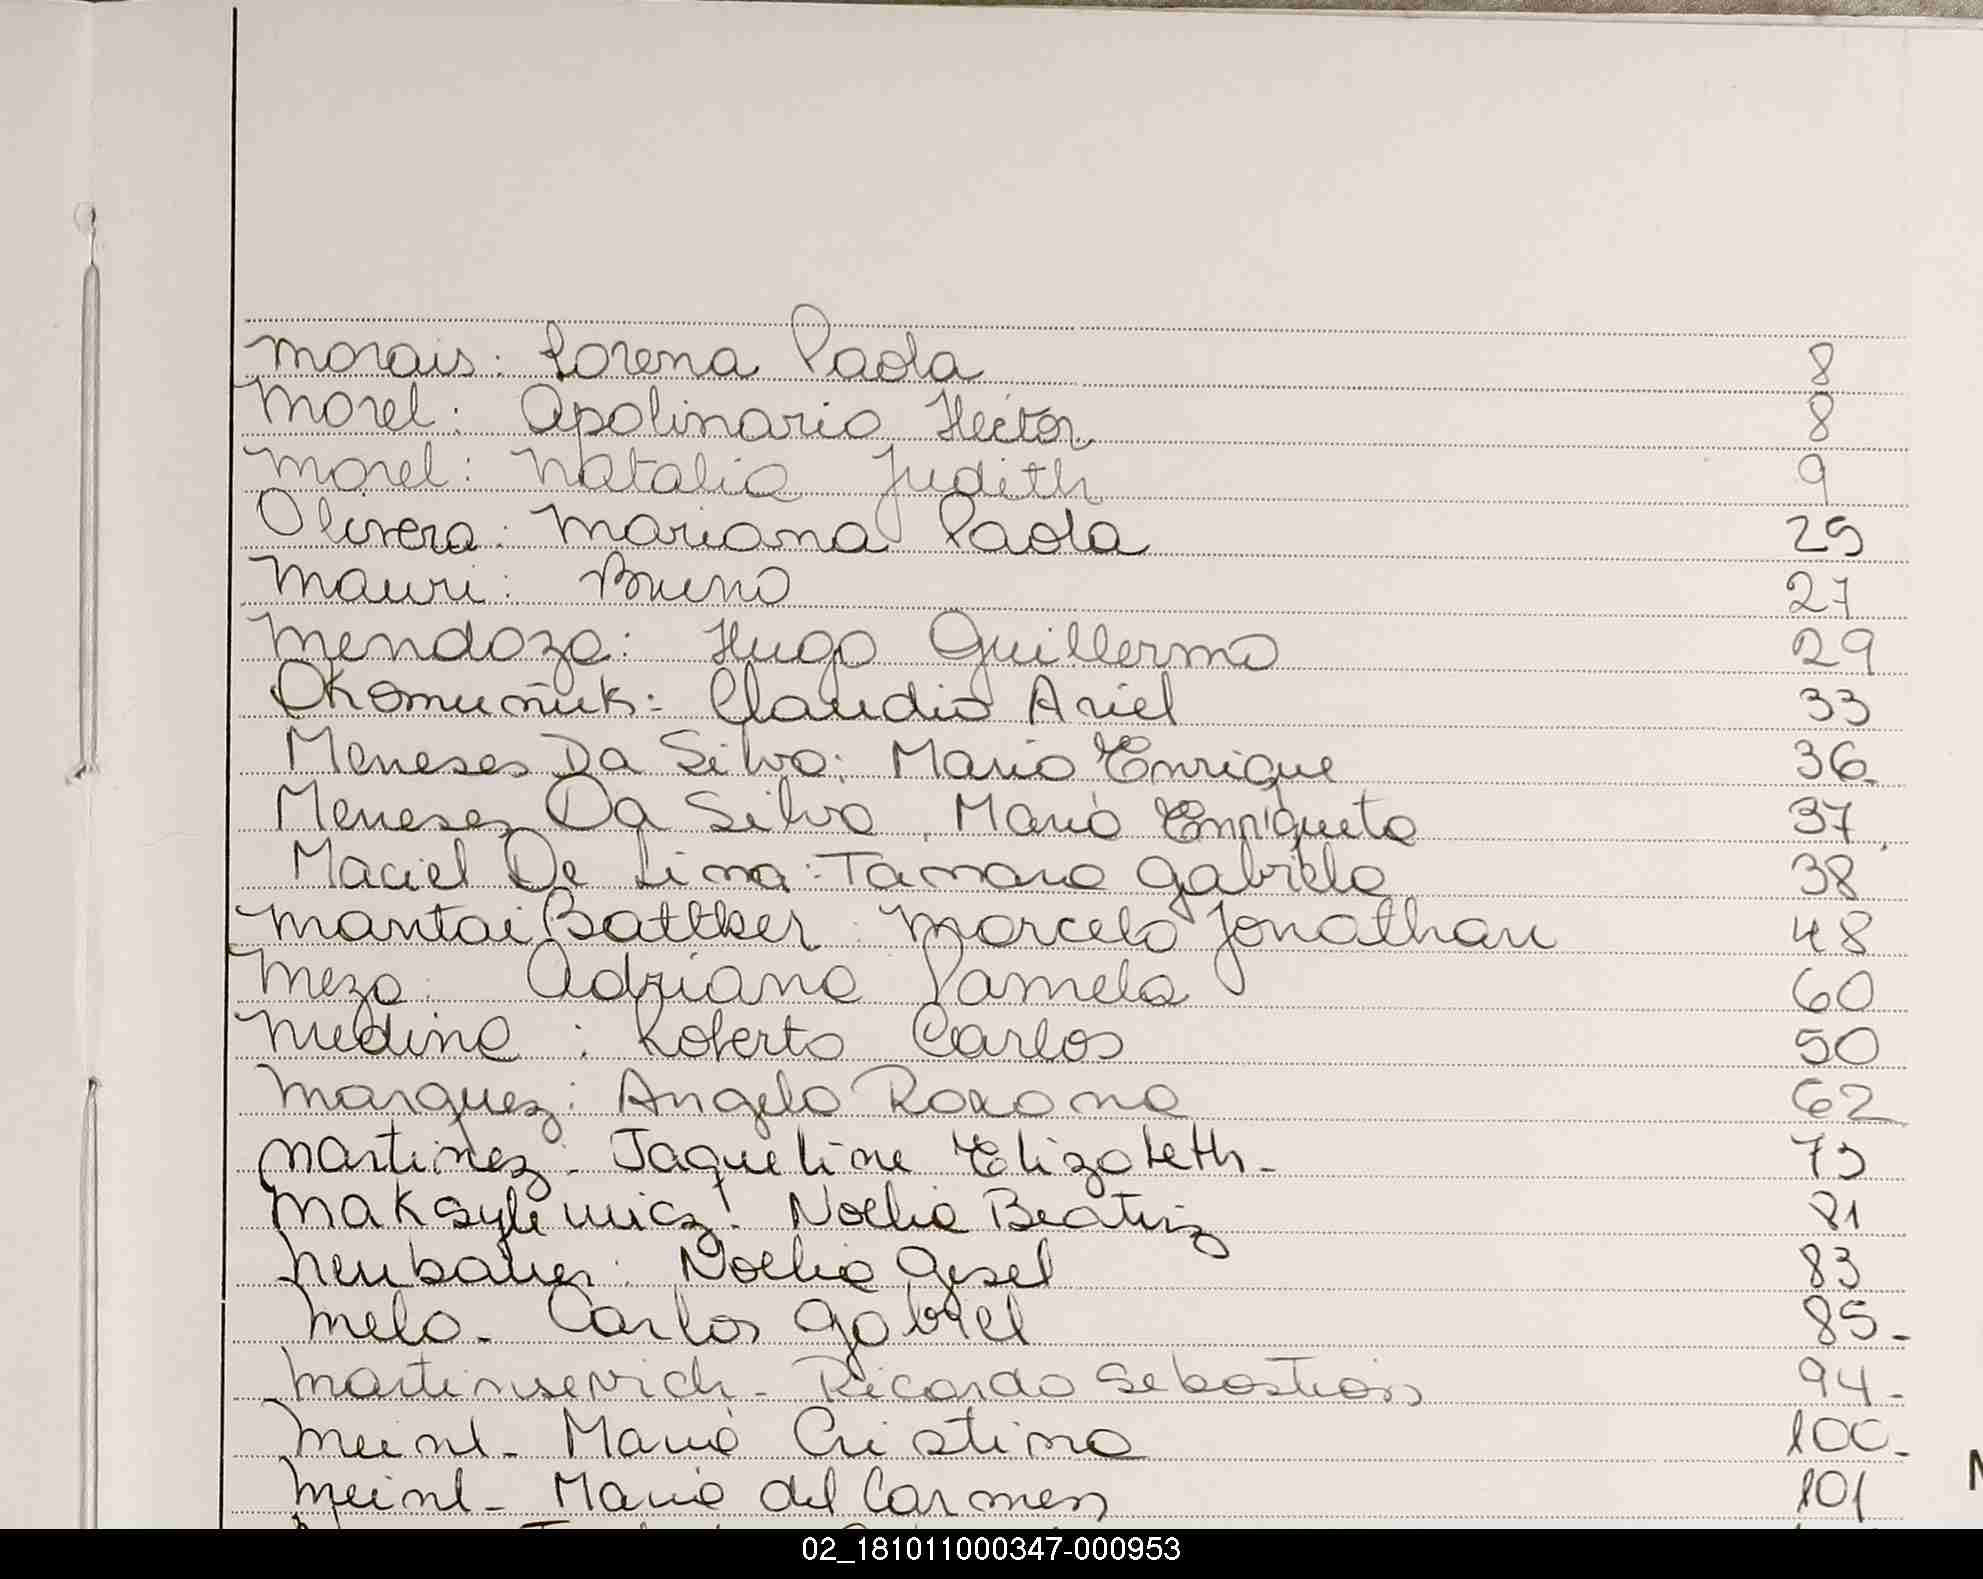 Morais: Lorena Paola 8
Morel: Apolinario Hector 8
Morel: Natalia Judith 9
Olivera: Mariana Paola 25
Mauri: Bruno 27
Mendoza: Hugo Guillermo 29
Claudio Ariel 33
Meneses Da Silva: Mario Enrique 36-
Meneses Da Silva, Maria Enriqueta 37
Maciel De Lima: Tamara Gabriela 38
Mantai Battker: Marcelo Jonathan 48
Meza: Adriana Pamela 60
Medina: Roberto Carlos 50
Marquez: Angela Roxana 62
Martinez: Jaqueline Elizabeth- 75
Noelia Beatriz 81
Neubauer: Noelia Gisel 83
Melo- Carlos Gabriel 85-
Ricardo Sebastian 94-
Meinl- Maria Cristina 100-
Meinl- Maria del Carmen 101
02_181011000347-000953